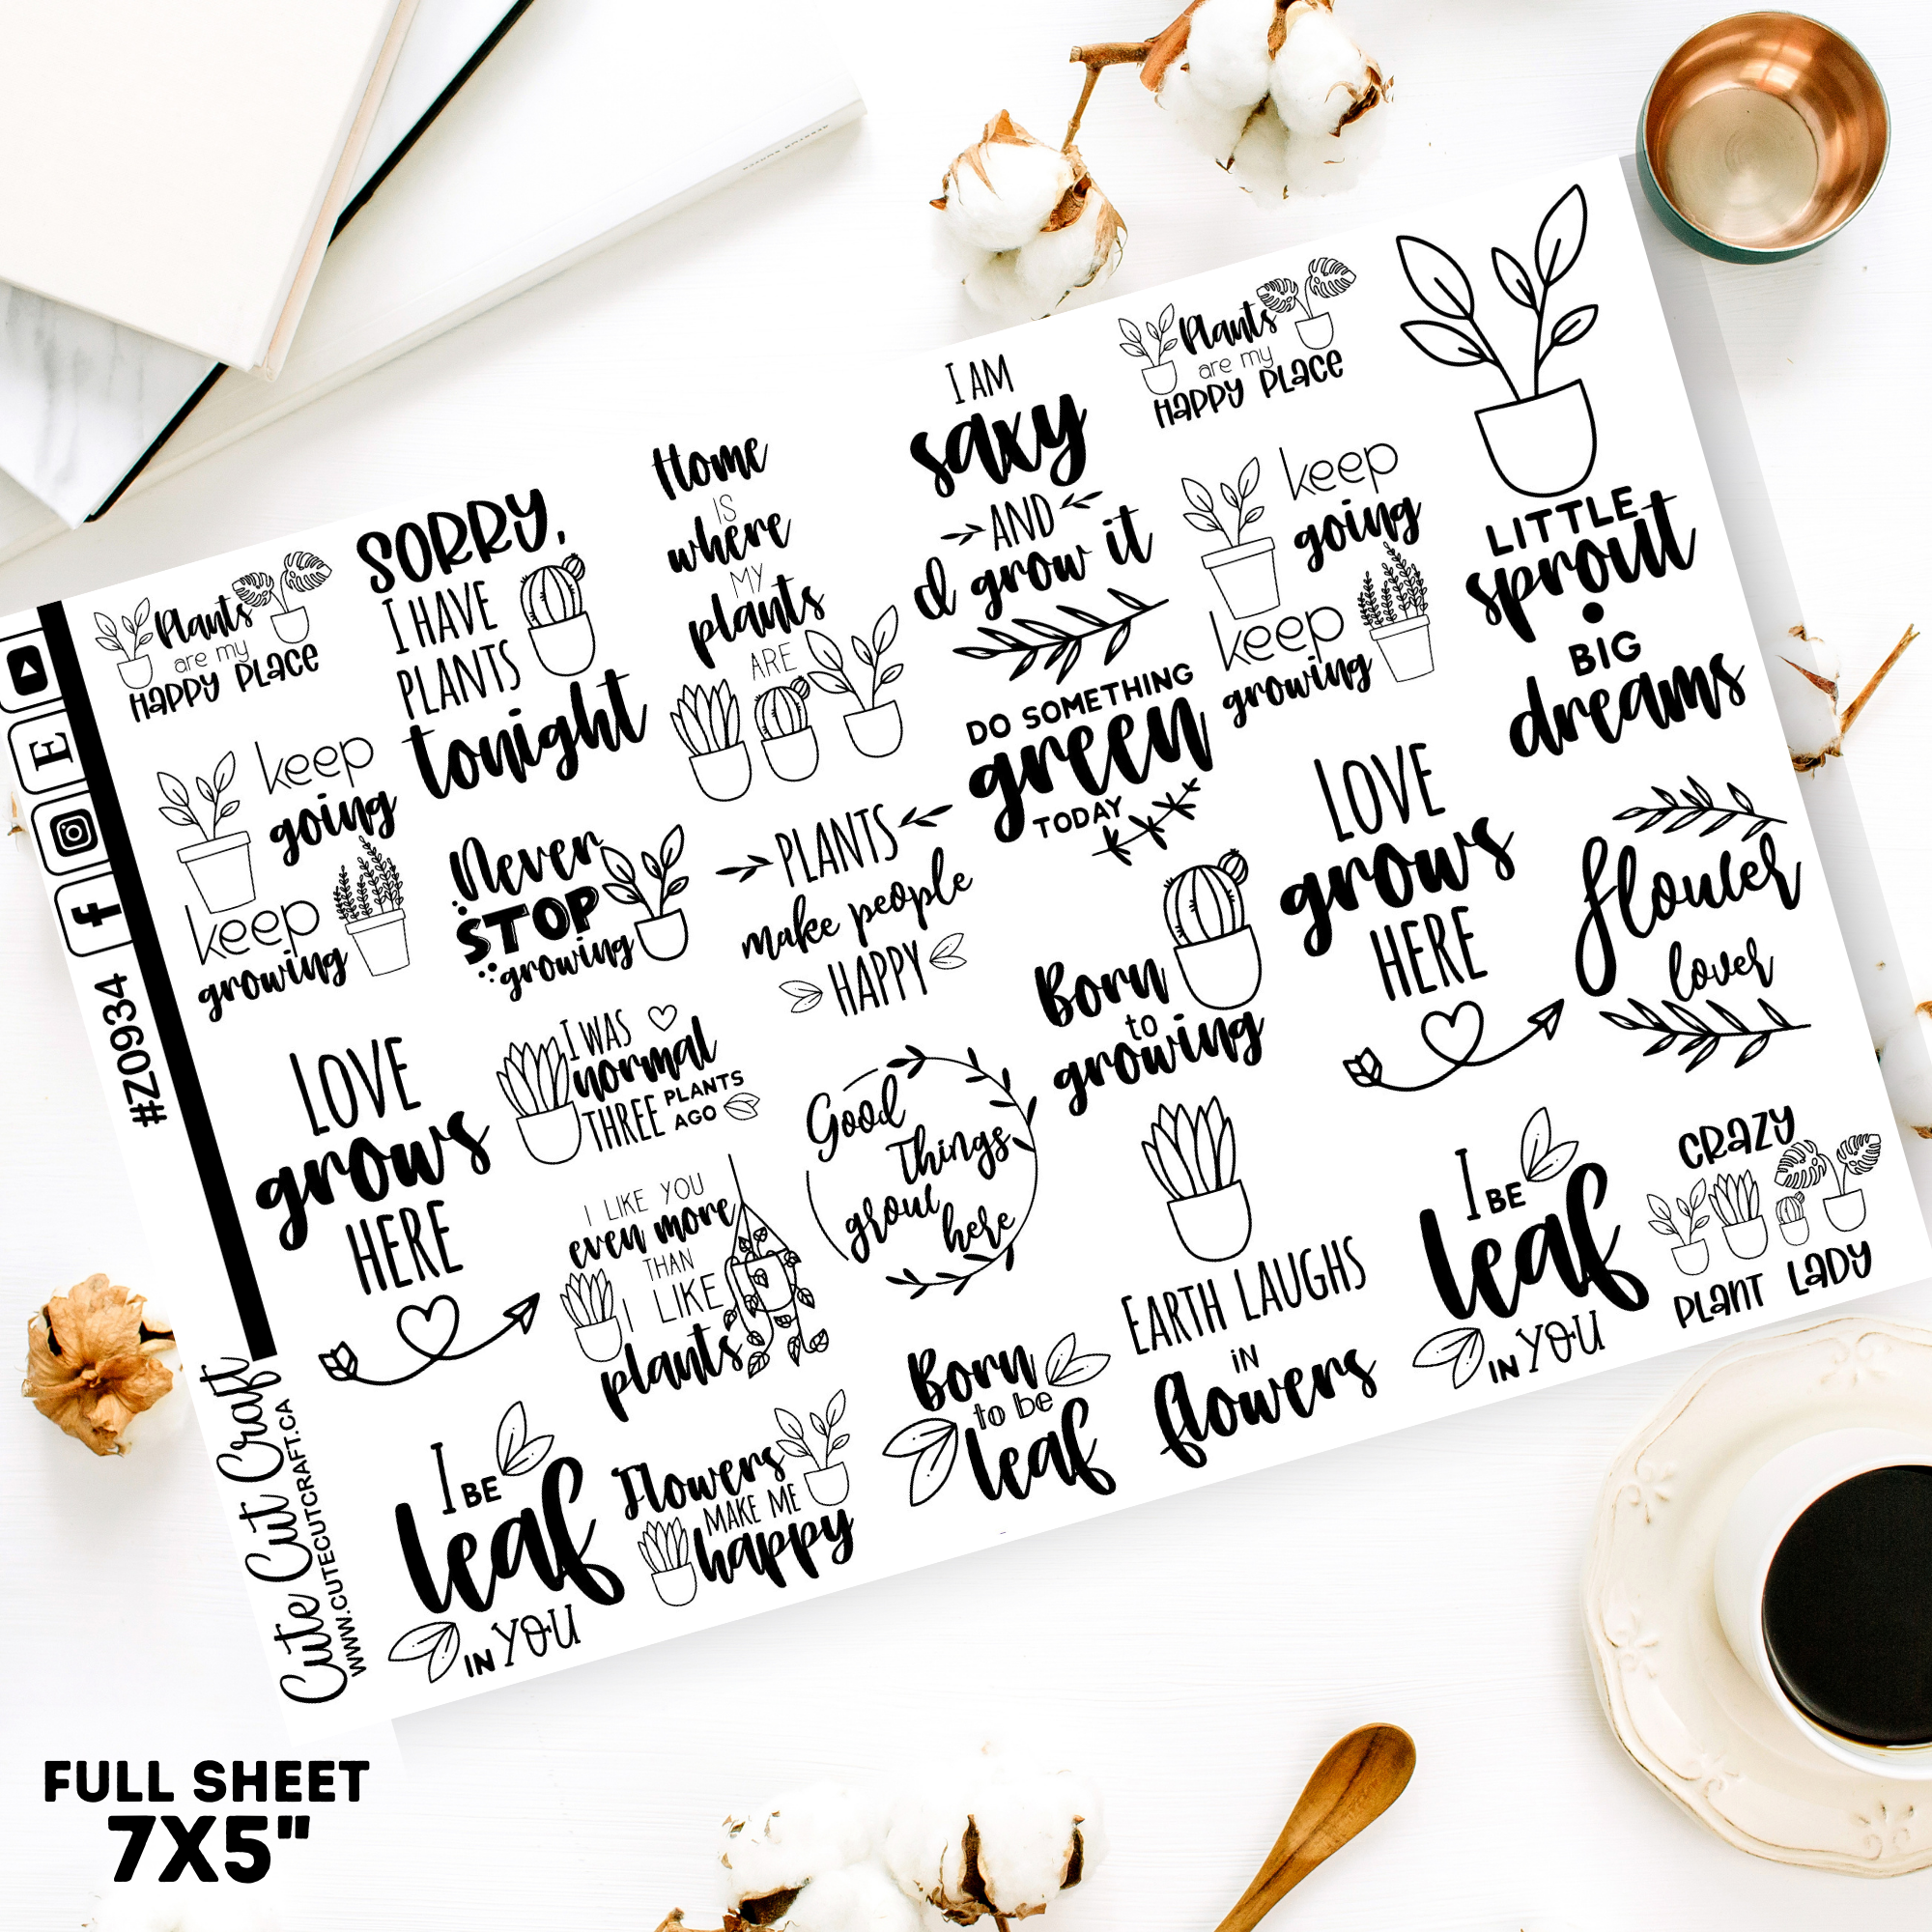 Plants
are my
Happy Place
keep
going
keep
growing
LOVE
grows
HERE
I BE
leaf
IN YOU
SORRY,
I HAVE
PLANTS
tonight
Never
STOP
growing
I WAS
normal
THREE PLANTS
AGO
I LIKE YOU
even more
THAN
I LIKE
plants
Flowers
MAKE ME
happy
Home
IS
where
MY
plants
ARE
PLANTS
make people
HAPPY
Good
Things
grow
here
Born
to be
leaf
I AM
saxy
AND
d grow it
DO SOMETHING
green
TODAY
Born
to
growing
EARTH LAUGHS
IN
flowers
Plants
are my
Happy Place
keep
going
keep
growing
LOVE
grows
HERE
I BE
leaf
IN YOU
LITTLE
sprout
BIG
dreams
flower
lover
CRAZY
PLANT LADY
E
f
#Z0934
Cute Cut Craft
WWW.CUTECUTCRAFT.CA
FULL SHEET
7X5"